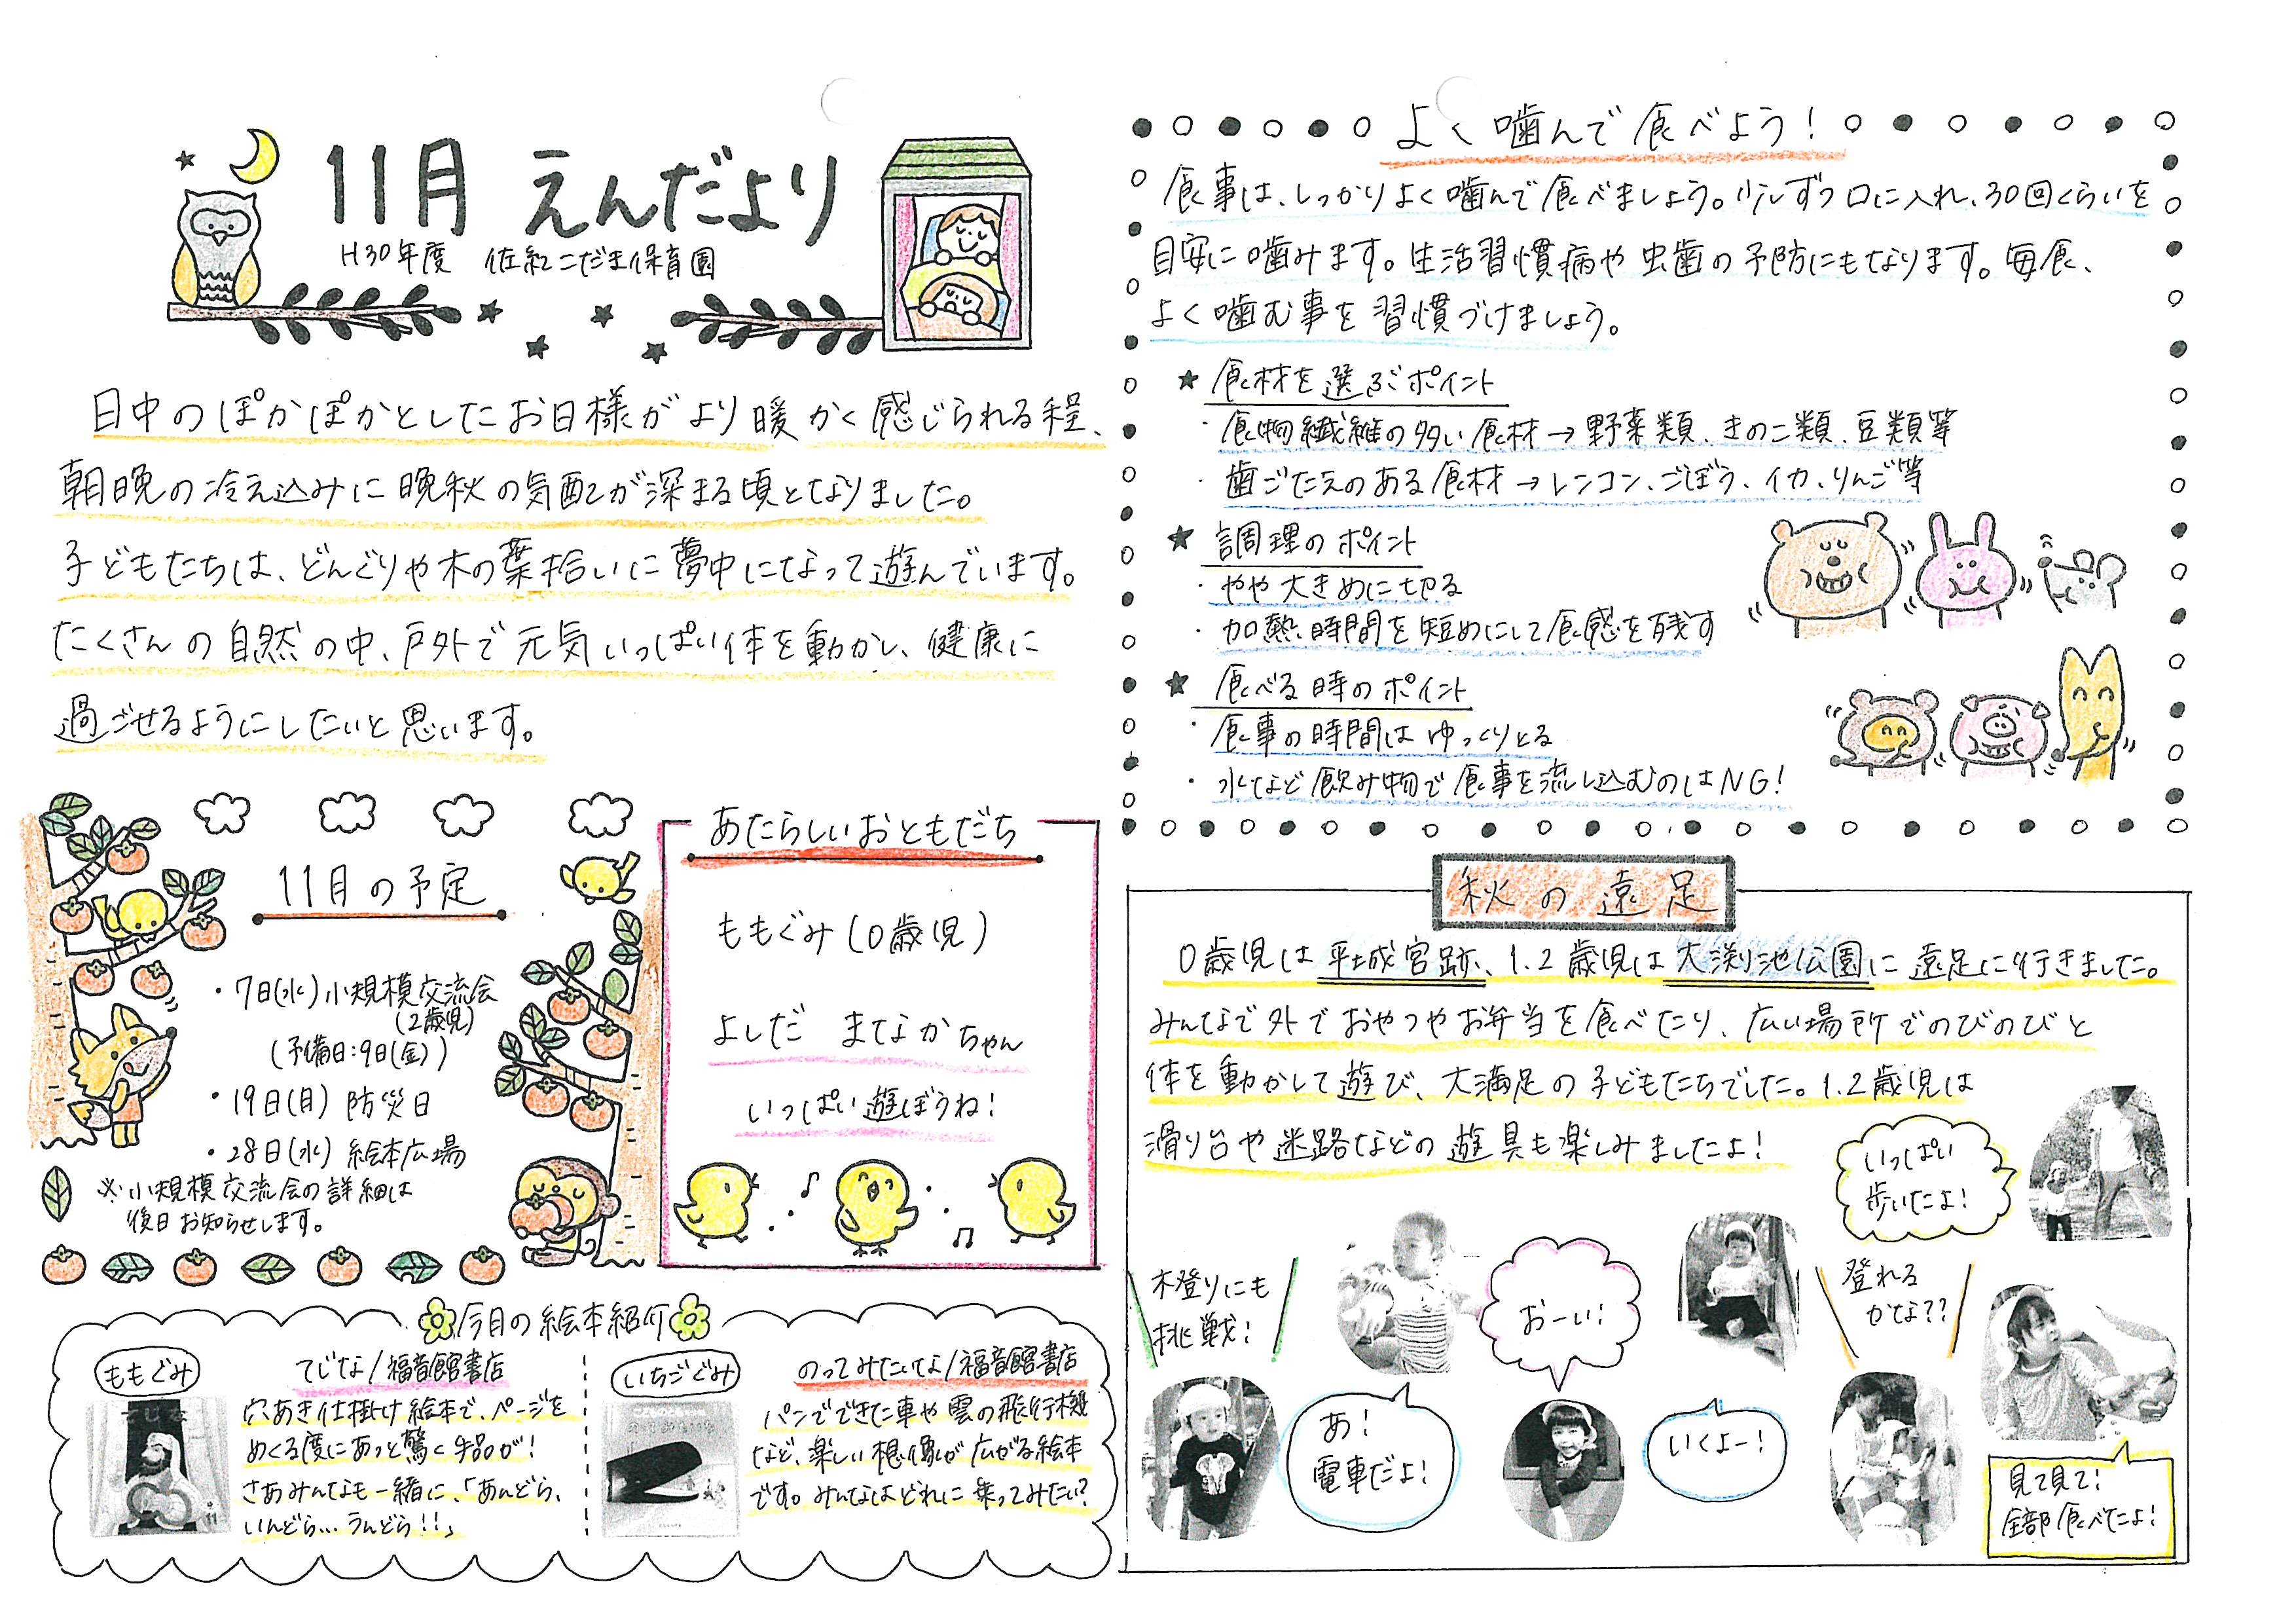 11月 えんだより
H30年度 佐紀こだま保育園
日中のぽかぽかとしたお日様がより暖かく感じられる程、
朝晩の冷え込みに晩秋の気配が深まる頃となりました。
子どもたちは、どんぐりや木の葉拾いに夢中になって遊んでいます。
たくさんの自然の中、戸外で元気いっぱい体を動かし、健康に
過ごせるようにしたいと思います。
11月の予定
・7日(水)小規模交流会
(2歳児)
(予備日:9日(金))
・19日(月) 防災日
・28日(水) 絵本広場
※小規模交流会の詳細は
後日お知らせします。
あたらしいおともだち
ももぐみ(0歳児)
よしだ まなかちゃん
いっぱい遊ぼうね!
今月の絵本紹介
ももぐみ
てじな/福音館書店
穴あき仕掛け絵本で、ページを
めくる度にあっと驚く手品が!
さあみんなも一緒に、「あんどら、
いんどら…うんどら!!」
てじな
いちごぐみ
のってみたいな/福音館書店
パンでできた車や雲の飛行機
など、楽しい想像が広がる絵本
です。みんなはどれに乗ってみたい?
よく噛んで食べよう!
食事は、しっかりよく噛んで食べましょう。少しずつ口に入れ、30回くらいを
目安に噛みます。生活習慣病や虫歯の予防にもなります。毎食、
よく噛む事を習慣づけましょう。
★ 食材を選ぶポイント
・食物繊維の多い食材→野菜類、きのこ類、豆類等
・歯ごたえのある食材→レンコン、ごぼう、イカ、りんご等
★ 調理のポイント
・やや大きめに切る
・加熱時間を短めにして食感を残す
★ 食べる時のポイント
・食事の時間はゆっくりとる
・水など飲み物で食事を流し込むのはNG!
秋の遠足
0歳児は平城宮跡、1.2歳児は大渕池公園に遠足に行きました。
みんなで外でおやつやお弁当を食べたり、広い場所でのびのびと
体を動かして遊び、大満足の子どもたちでした。1.2歳児は
滑り台や迷路などの遊具も楽しみましたよ!
いっぱい
歩いたよ!
木登りにも
挑戦!
おーい!
登れる
かな??
あ!
電車だよ!
いくよー!
見て見て!
全部食べたよ!